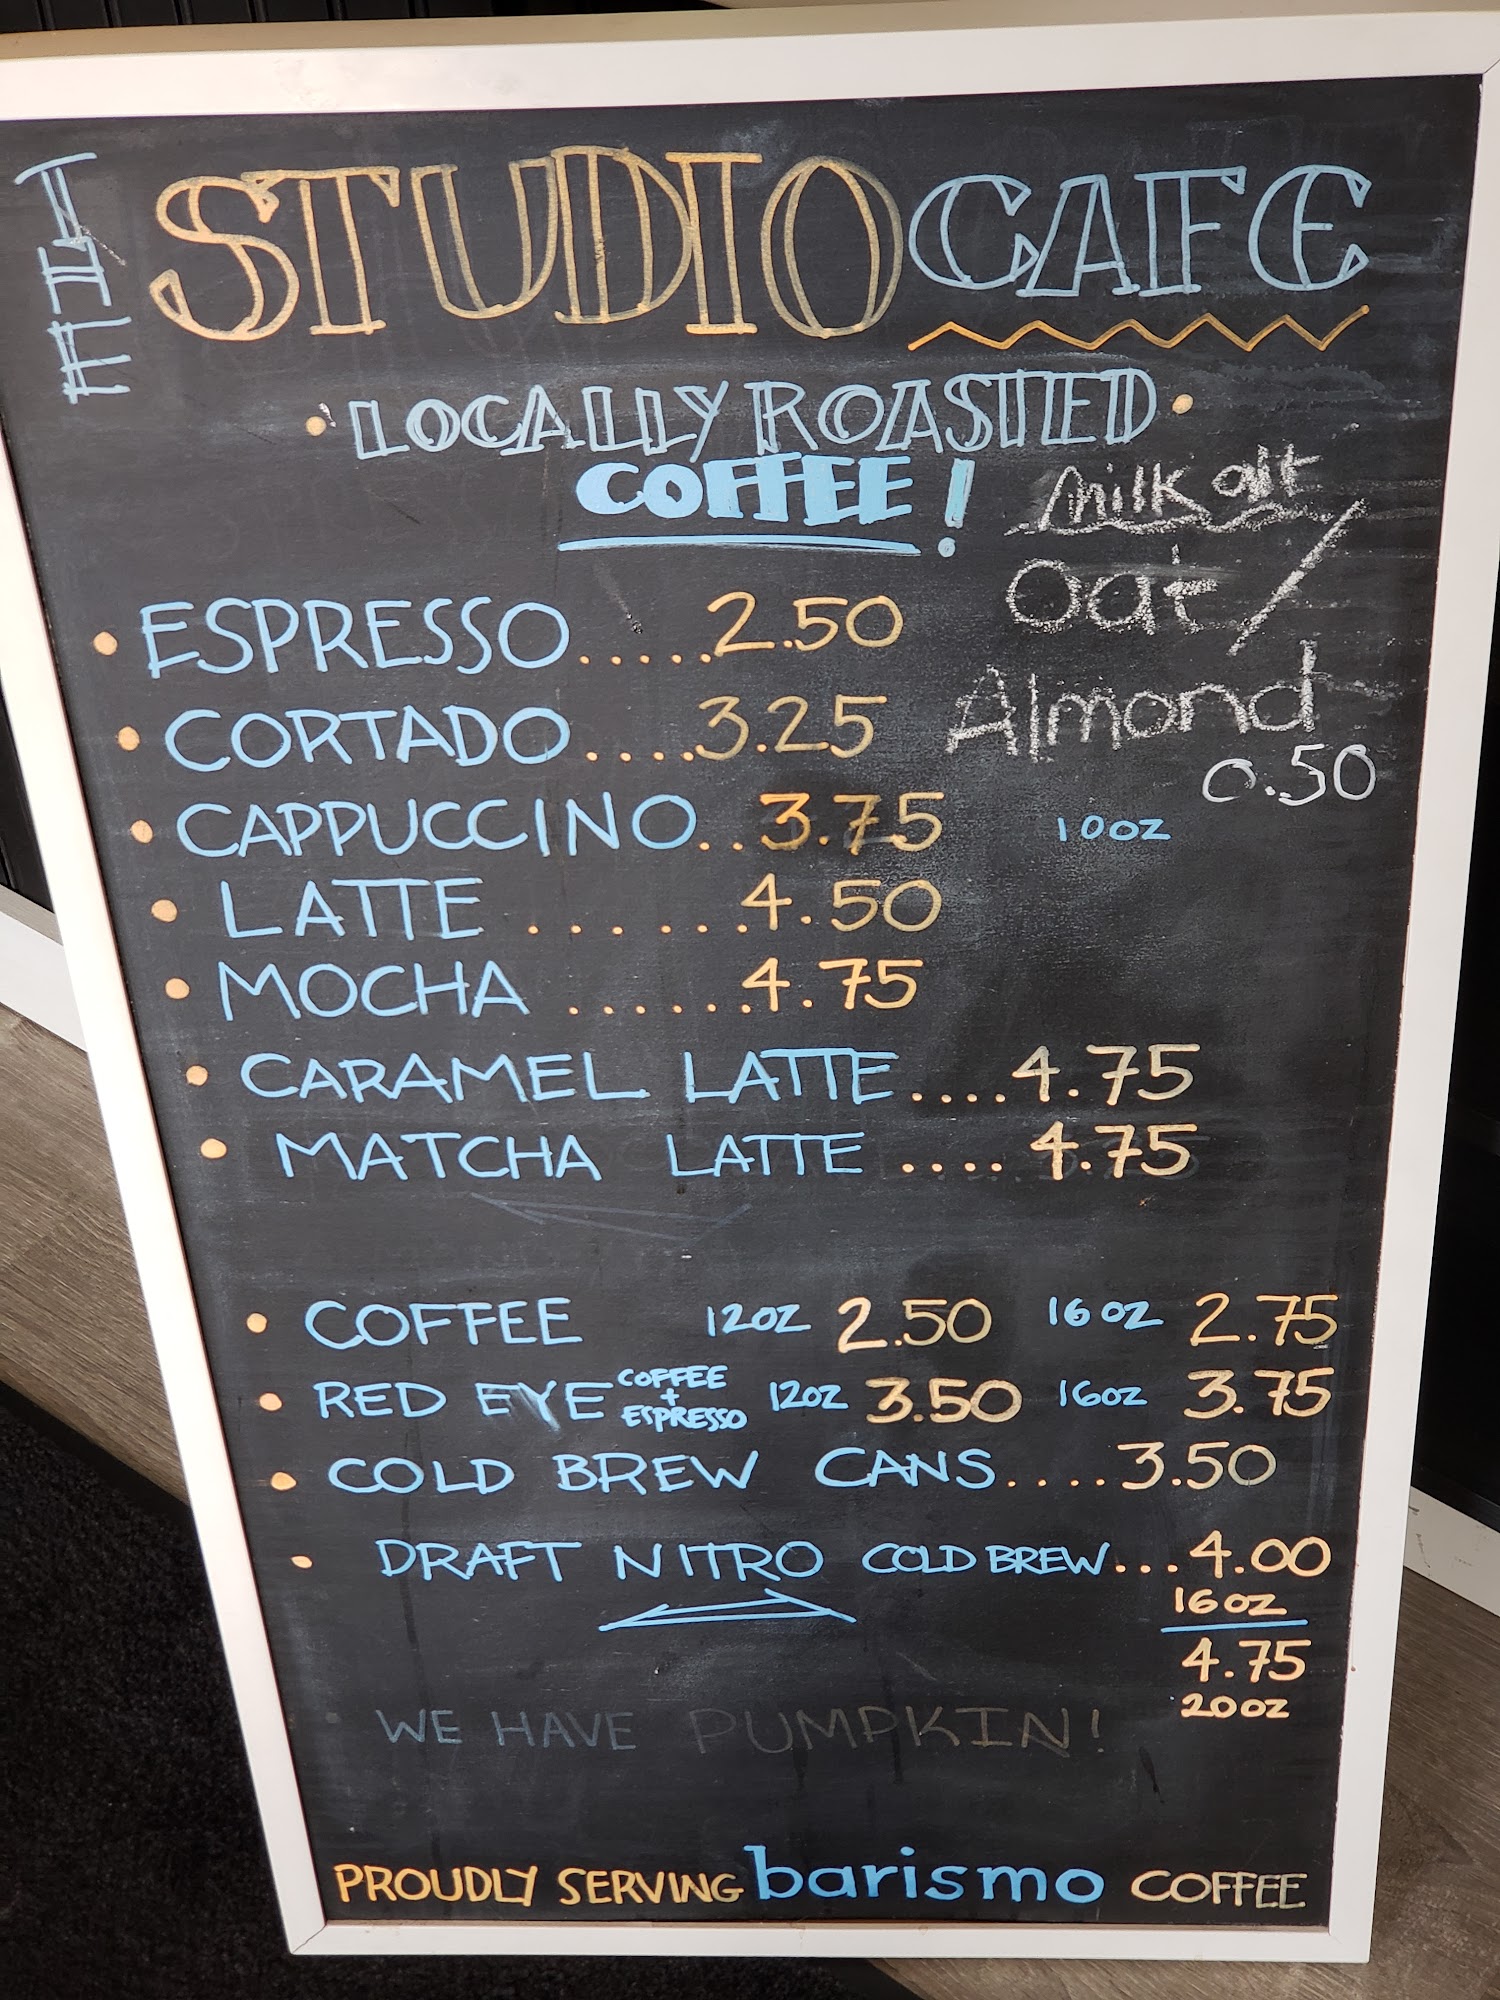 THE STUDIO CAFE
• LOCALLY ROASTED •
COFFEE!
Milk alt
Oat /
Almond
0.50
• ESPRESSO.....2.50
• CORTADO.....3.25
• CAPPUCCINO..3.75 10oz
• LATTE .......4.50
• MOCHA .......4.75
• CARAMEL LATTE....4.75
• MATCHA LATTE ....4.75
• COFFEE 12oz 2.50 16oz 2.75
• RED EYE COFFEE + ESPRESSO 12oz 3.50 16oz 3.75
• COLD BREW CANS....3.50
• DRAFT NITRO COLD BREW...4.00
16oz
4.75
20oz
WE HAVE PUMPKIN!
PROUDLY SERVING barismo COFFEE